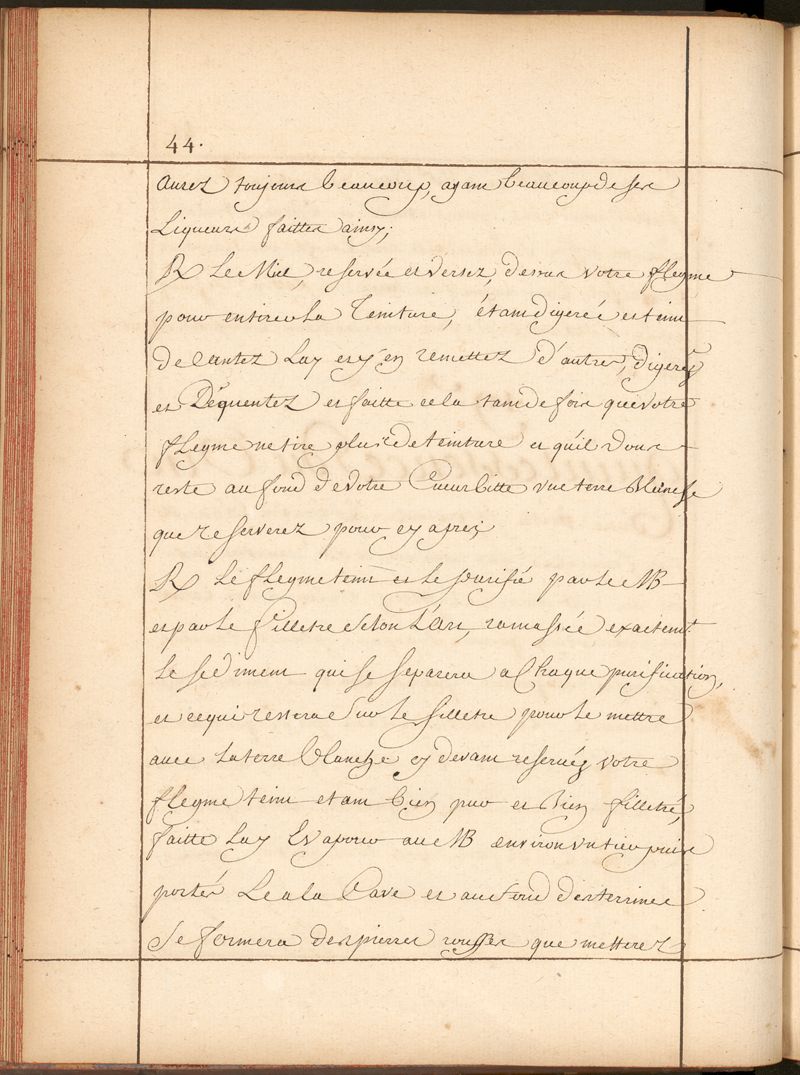 44.
aurez toujours beaucoup, ayant beaucoup de ses
Liqueurs faittes ainsy;
R Le Miel, reservée et versez, dessus votre flegme
pour en tirer la Teinture, étant digerée et teint
decantez Lay et y en remettez d'autre, digerez
et Déquentez et faitte cela tant de fois que votre
flegme ne tire plus de teinture et qu'il vous
reste au fond de votre Cucurbitte une terre
que reserverez pour cy apres
R Le flegme teint et le purifié par le MB
et par le filletre selon L'Art, ramassée exactemt
le sediment qui se separera a Chaque purification,
et ce qui restera sur le filletre pour le mettre
avec la terre blanche cy devant reservéz votre
flegme teint etant bien pur et bien filletré,
faitte Lay Evaporer au MB environ un tier puis
portés Le a la Cave et au fond des terrines
se formera des pierres rousses que metterez